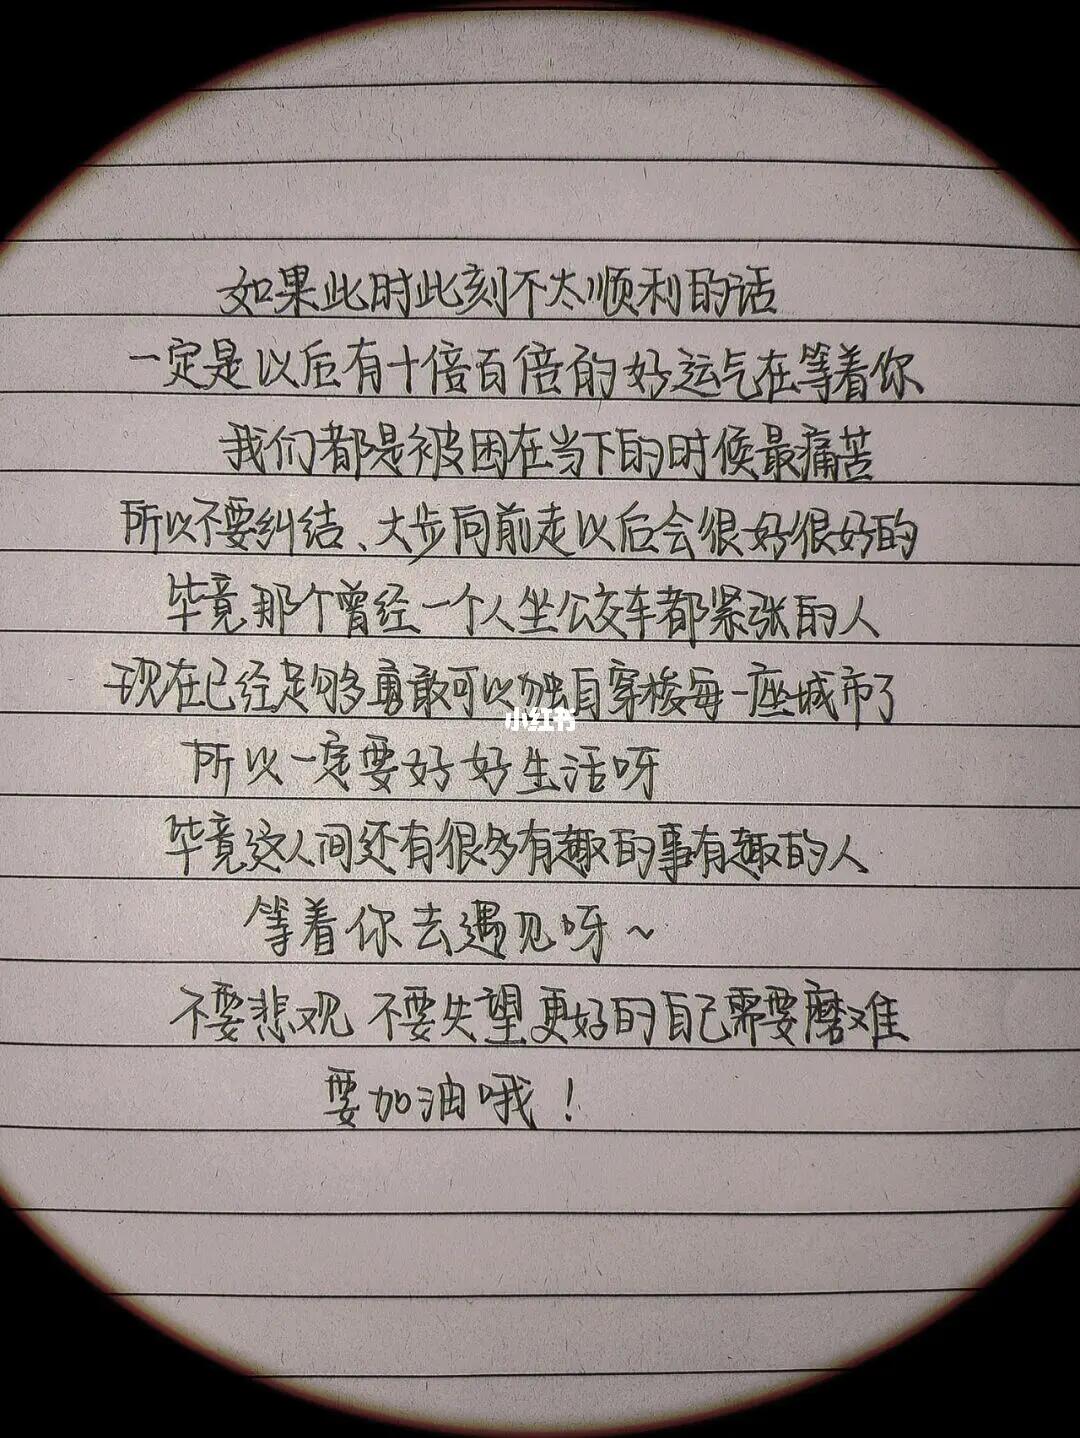 如果此时此刻不太顺利的话
一定是以后有十倍百倍的好运气在等着你
我们都是被困在当下的时候最痛苦
所以不要纠结、大步向前走以后会很好很好的
毕竟那个曾经一个人坐公交车都紧张的人
现在已经足够勇敢可以独自穿梭每一座城市了
小红书
所以一定要好好生活呀
毕竟这人间还有很多有趣的事有趣的人
等着你去遇见呀~
不要悲观 不要失望 更好的自己需要磨难
要加油哦！